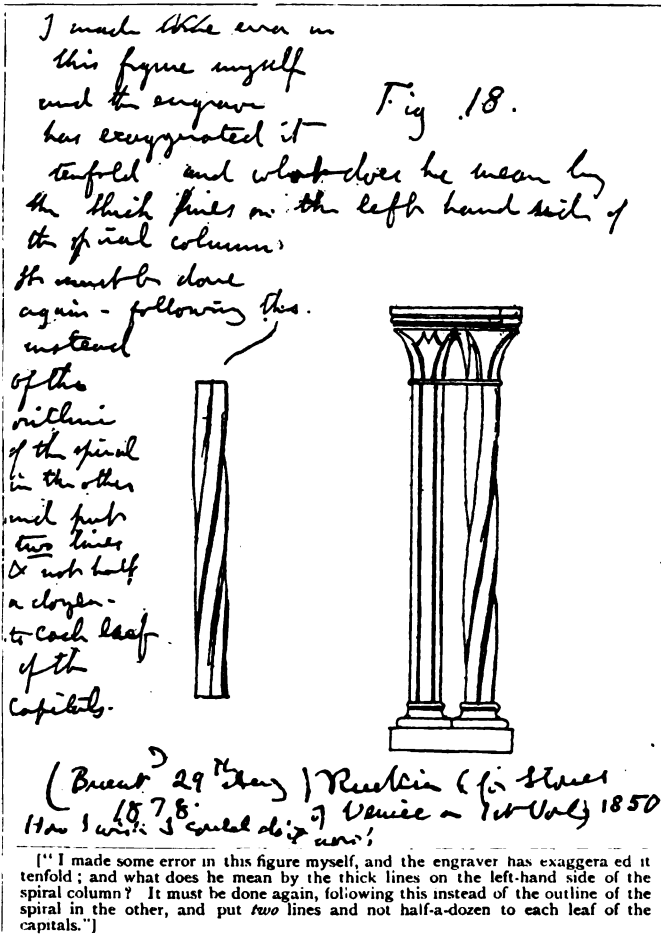 I made some error in
this figure myself
and the engraver
has exaggerated it
Fig 18.
tenfold and what does he mean by
the thick lines on the left hand side of
the spiral column?
It must be done
again - following this.
instead
of the
outline
of the spiral
in the other
and put
two lines
& not half
a dozen -
to each leaf
of the
capitals.
29th Aug) Ruskin (for Stones
1878. of Venice 1st Vol) 1850
How I wish I could do it now!
[“ I made some error in this figure myself, and the engraver has exaggera ed it
tenfold ; and what does he mean by the thick lines on the left-hand side of the
spiral column? It must be done again, following this instead of the outline of the
spiral in the other, and put two lines and not half-a-dozen to each leaf of the
capitals.”]